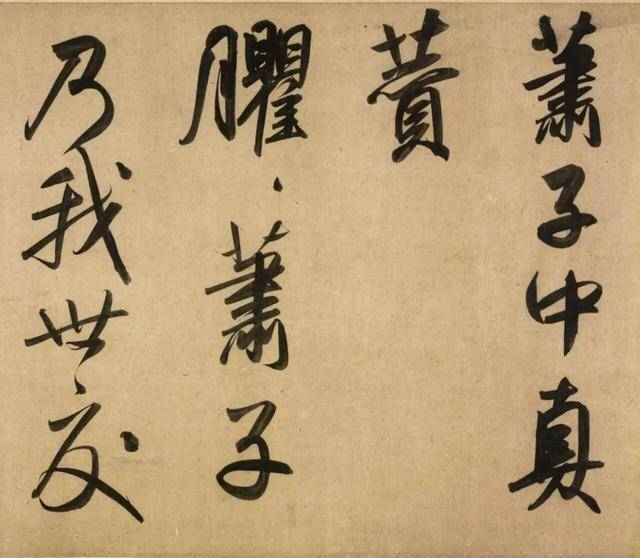 蕭子中真
贊
臞、蕭子
乃我世友